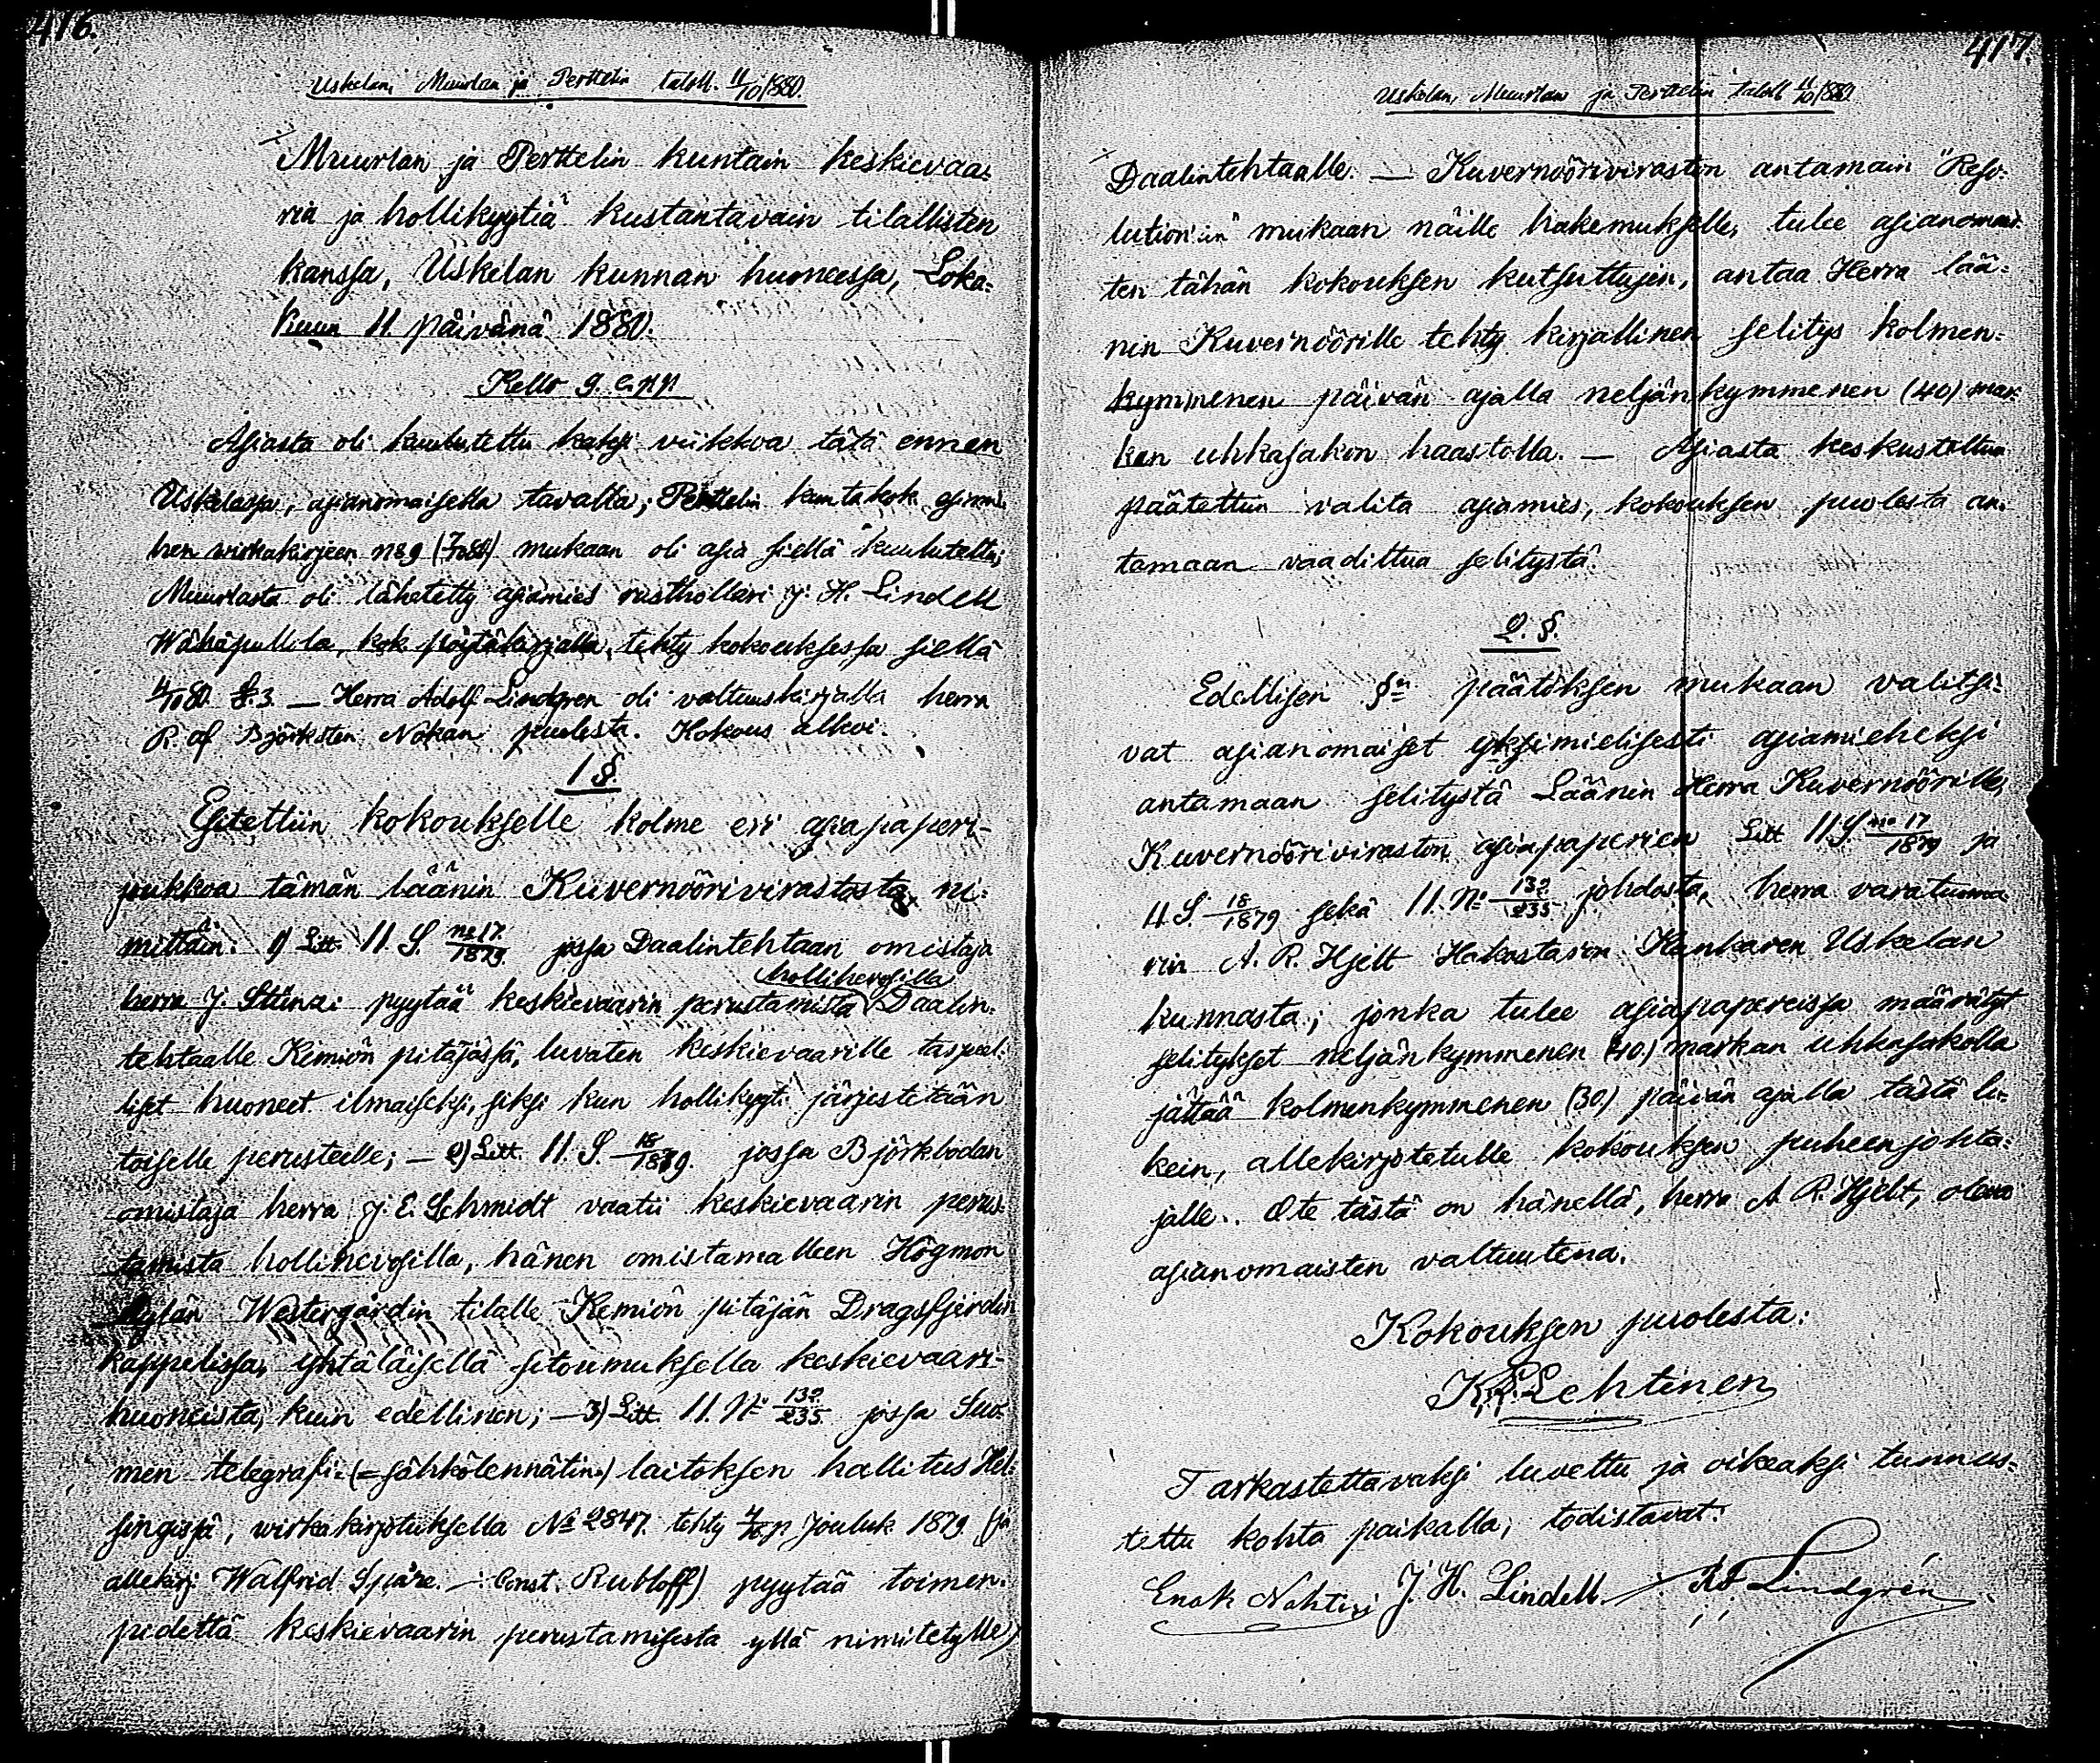 416.
Uskelan, Muurlan ja Perttelin taloll. 11/10 1880.
Muurlan ja Perttelin kuntain keskievaa=
ria ja hollikyytiä kustantavain tilallisten
kanssa, Uskelan kunnan huoneessa, Loka=
kuun 11 päivänä 1880.
Kello 9. e. pp
Asiasta oli kuulutettu kaksi viikkoa tätä ennen
Uskelassa, asianomaisella tavalla; Perttelin kuntakok. esimie
hen wirkakirjeen No 9 (7/10 80) mukaan oli asia siellä kuulutettu;
Muurlasta oli lähetetty asiamies rusthollari J. H. Lindell
Wähäpullila, kok. pöytäkirjalla, tehty kokouksessa siellä
4/10 80 §. 3. — Herra Adolf Lindgren oli valtuuskirjalla herra
R. af Björksten Nokan puolesta. Kokous alkoi.
1 §.
Esitettiin kokoukselle kolme eri asiapaperi-
pukkoa tämän läänin Kuvernöörivirastosta, ni=
mittäin: 1) Litt. II S. No 17/1879. jossa Daalintehtaan omistaja
hollihevosilla
herra J. pyytää keskievaarin perustamista Daalin=
tehtaalle Kemiön pitäjässä, luvaten keskievaarille tarpeel=
liset huoneet ilmaiseksi, siksi kun hollikyyti järjestetään
toiselle perusteelle; — 2) Litt. II. S. 18/1879. jossa Björkbodan
omistaja herra J. E. Schmidt vaatii keskievaarin perus=
tamista hollihevosilla, hänen omistamalleen Högmon
kylän Westergårdin tilalle Kemiön pitäjän Dragsfjerdin
kappelissa, yhtäläisellä sitoumuksella keskievaari-
huoneista, kuin edellinen; — 3) Litt. II. No 132/235 jossa Suo=
men telegrafi- (= sähkölennätin-) laitoksen hallitus Hel=
singissä, wirkakirjotuksella No 2847. tehty p. Jouluk. 1879 (ja
allekirj. Walfrid Spåre. —: Const. Rubloff) pyytää toimen=
pidettä keskievaarin perustamisesta yllä nimitetylle
417.
Uskelan, Muurlan ja Perttelin taloll 11/10 1880
Daalintehtaalle. — Kuvernöörivirastön antamain "Reso=
lution'in" mukaan näille hakemuksille, tulee asianomais=
ten tähän kokouksen kutsuttujen, antaa Herra lää=
nin Kuvernöörille tehty kirjallinen selitys kolmen=
kymmenen päivän ajalla neljänkymmenen (40) mar=
kan uhkasakon haastolla. — Asiasta keskusteltua
päätettiin valita asiamies, kokouksen puolesta an=
tamaan vaadittua selitystä.
2. §.
Edellisen §n päätöksen mukaan valitsi=
vat asianomaiset yksimielisesti asiamieheksi
antamaan selitystä Läänin Herra Kuvernöörille,
Kuvernööriviraston asiapaperien Litt II S. No 17/1879 ja
II S. 18/1879 sekä II. No 132/235 johdosta, herra varatuoma=
rin A. R. Hjelt Hakastaron Kankaren Uskelan
kunnasta; jonka tulee asiapapereissa määrätyt
selitykset neljänkymmenen (40.) markan uhkasakolla
jättää kolmenkymmenen (30.) päivän ajalla tästä lu=
kein, allekirjotetulle kokouksen puheenjohta=
jalle. Ote tästä on hänellä, herra A. R. Hjelt, oleva
asianomaisten valtuutena.
Kokouksen puolesta:
K. L. Lehtinen
Tarkastettavaksi luvettu ja oikeaksi tunnus=
tettu kohta paikalla; todistavat:
Enok Nohteri J. H. Lindell. Ad Lindgrén